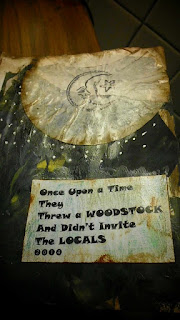 Once Upon a Time
They
Threw a WOODSTOCK
And Didn't Invite
The LOCALS
2010